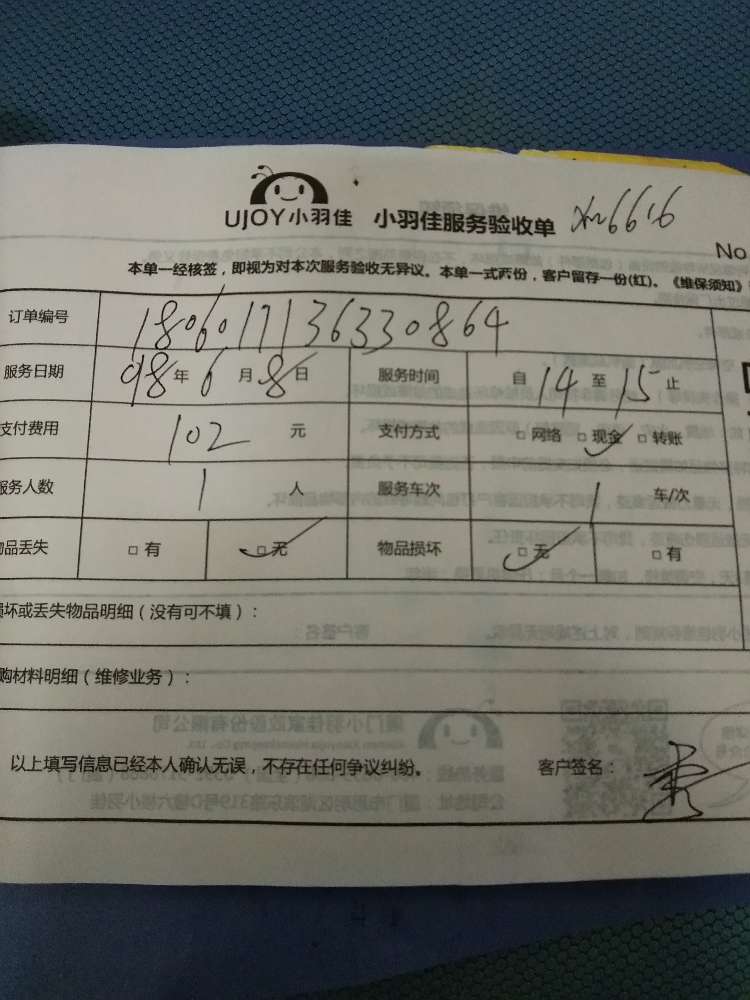 UJOY小羽佳 小羽佳服务验收单 6616
No
本单一经核签，即视为对本次服务验收无异议。本单一式两份，客户留存一份(红)。《维保须知》
订单编号 1806017136330864
服务日期 98年6月8日 服务时间 自14至15止
支付费用 102元 支付方式 □网络 □现金 □转账
服务人数 1人 服务车次 1车/次
物品丢失 □有 □无 物品损坏 □无 □有
损坏或丢失物品明细（没有可不填）：
购材料明细（维修业务）：
以上填写信息已经本人确认无误，不存在任何争议纠纷。 客户签名：